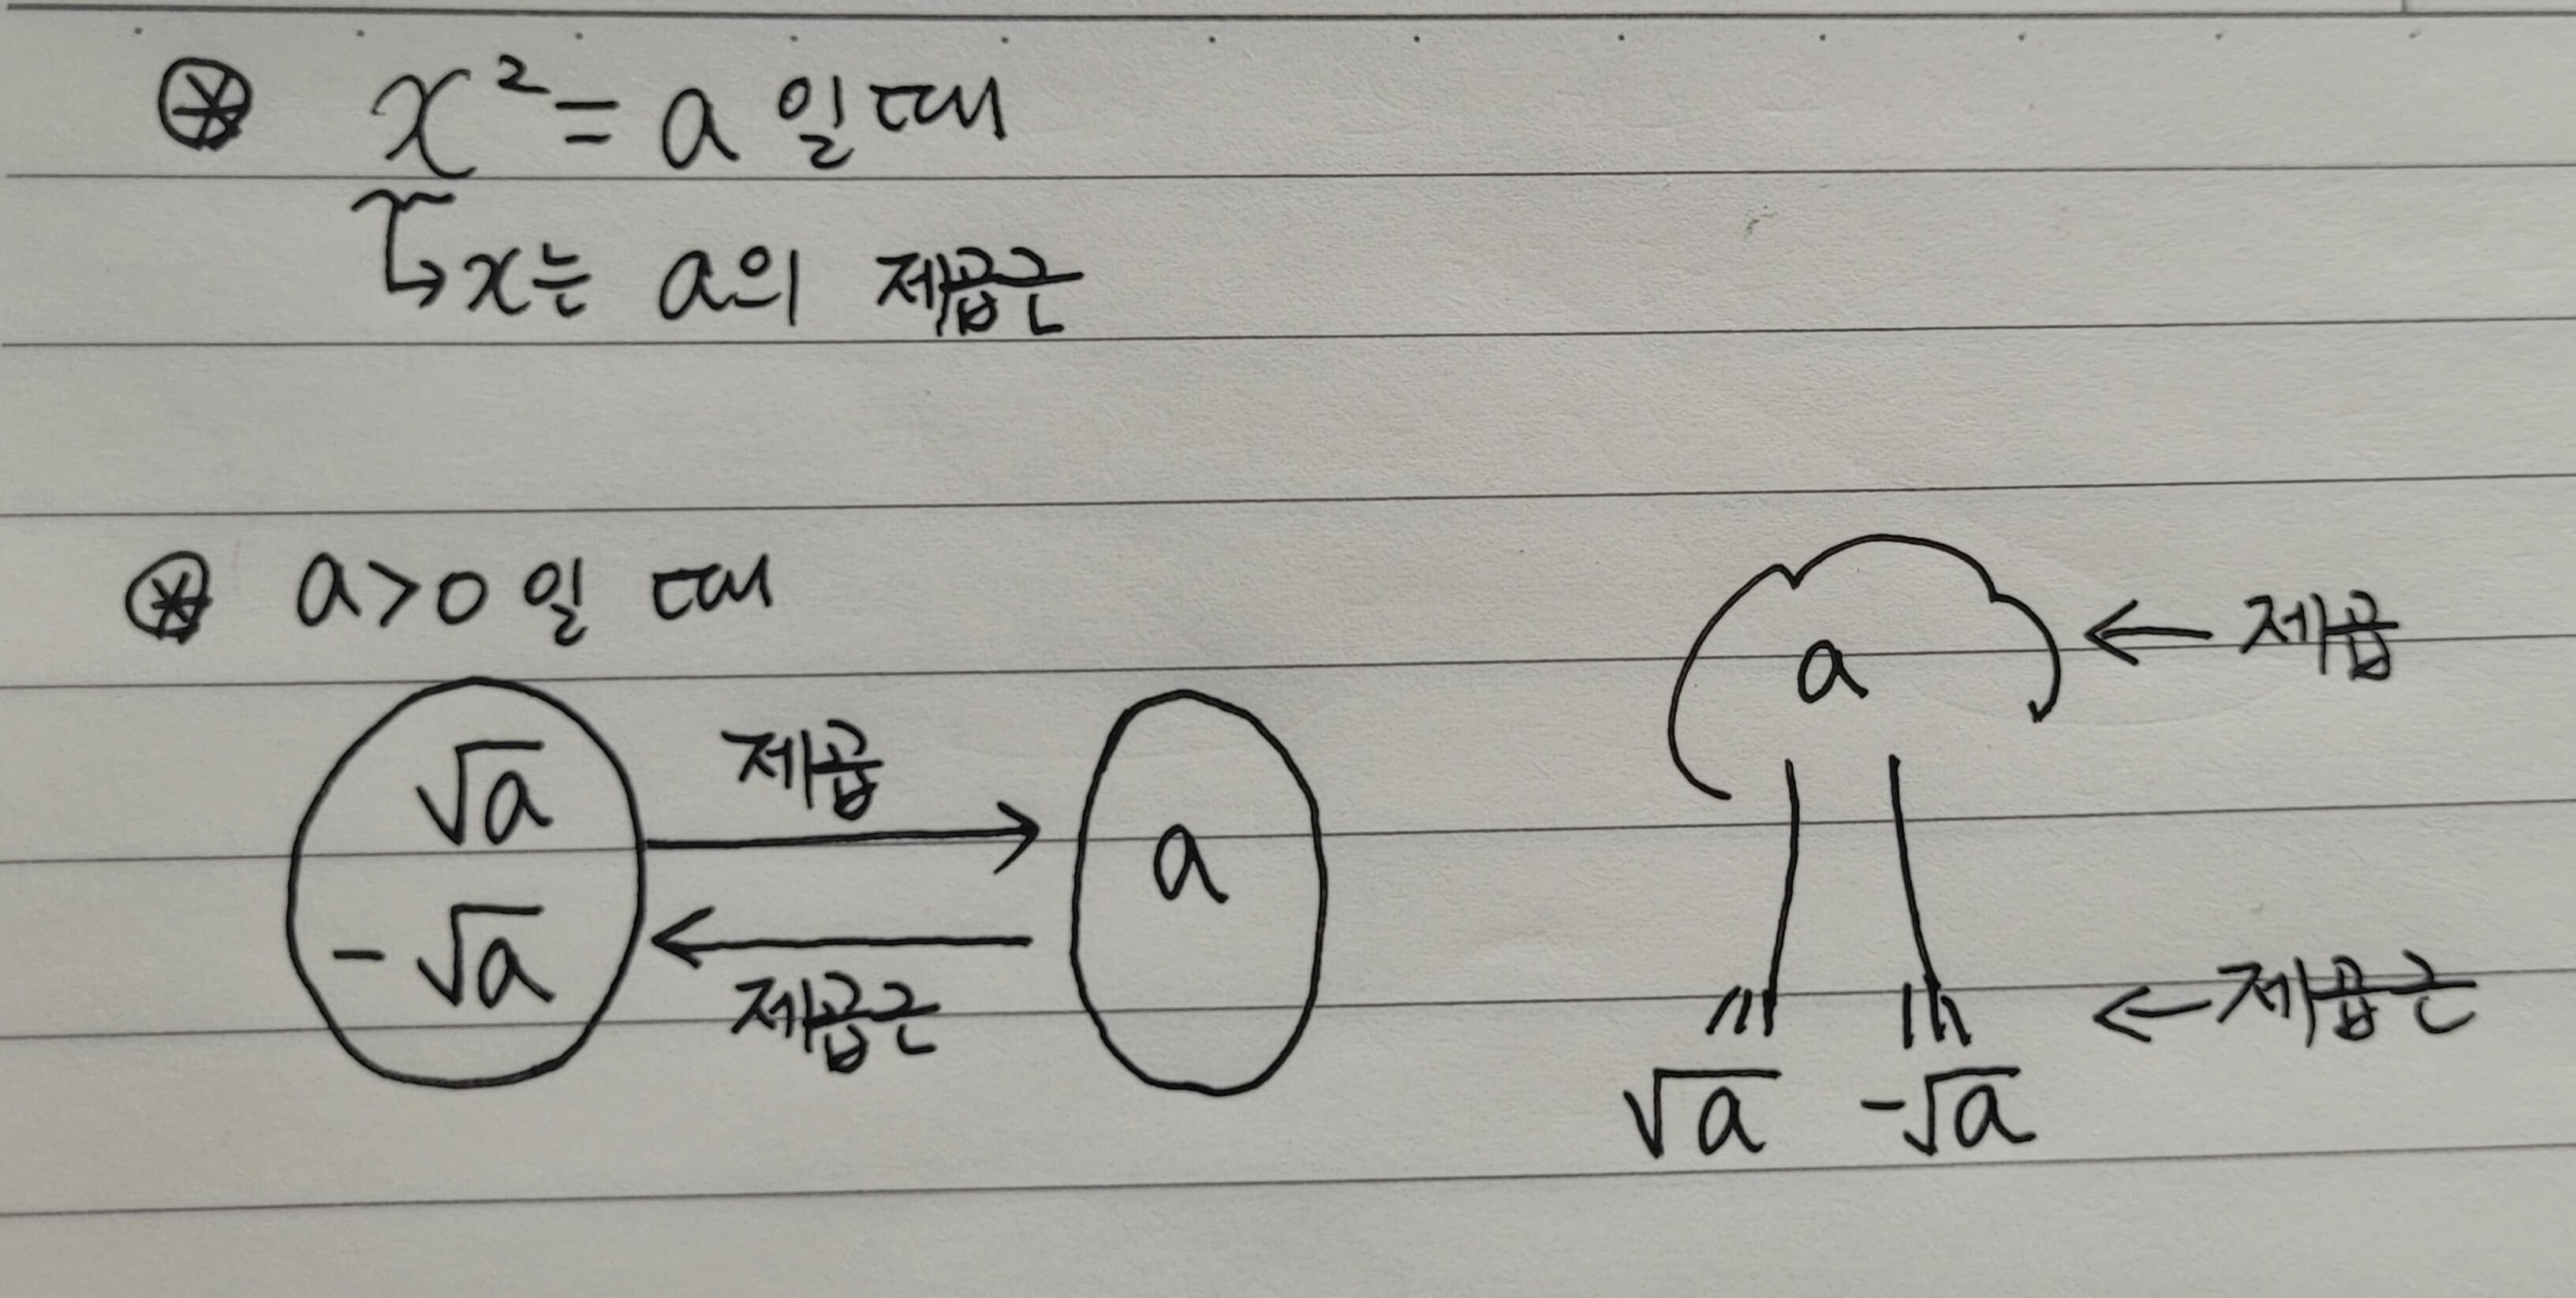 ⊛ x² = a 일때
↳ x는 a의 제곱근
⊛ a>0 일 때
√a
-√a
제곱
제곱근
a
a
← 제곱
← 제곱근
√a -√a